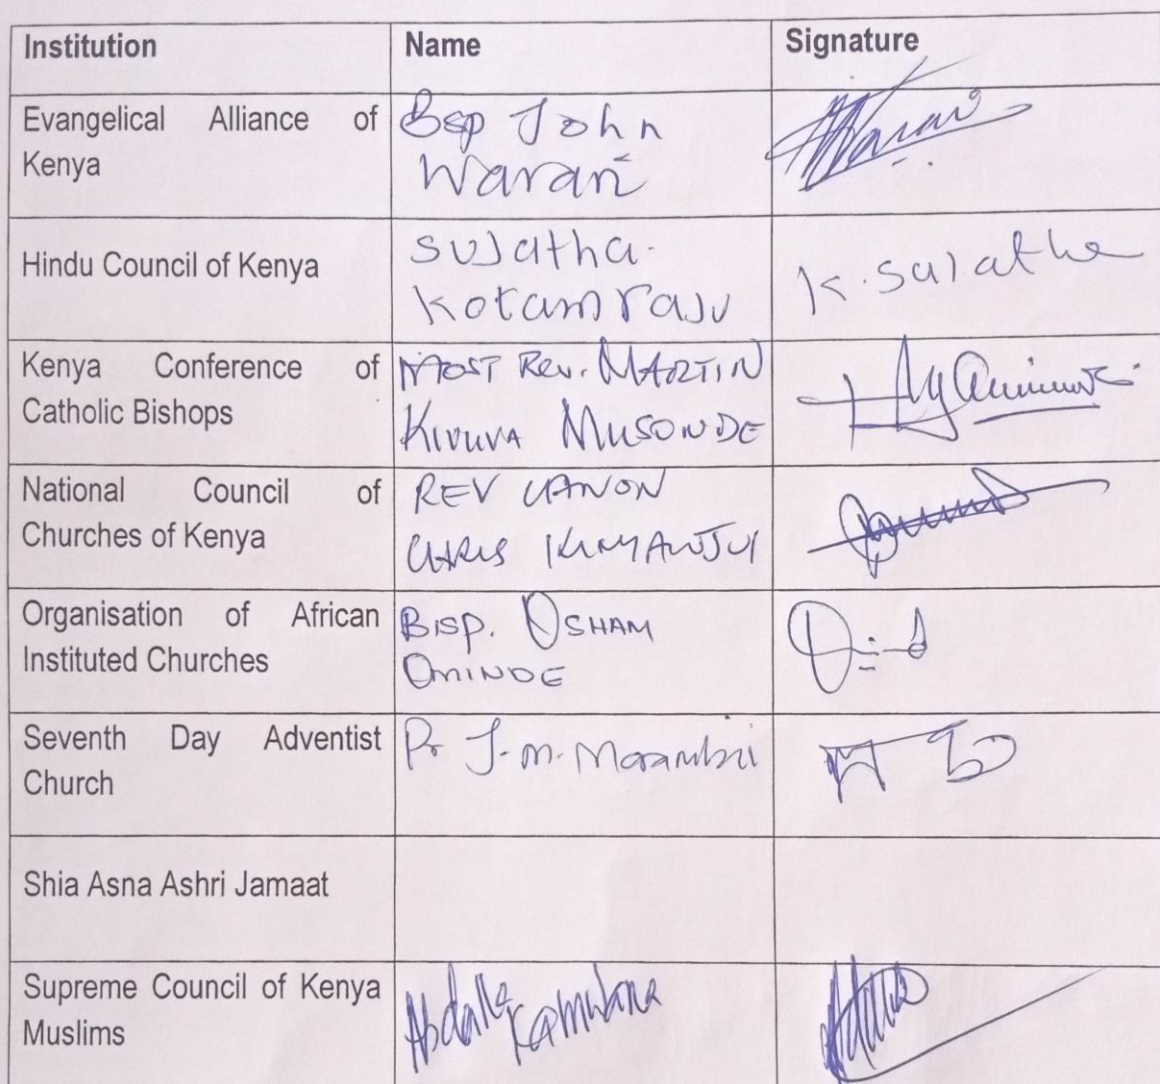 Institution Name Signature
Evangelical Alliance of Kenya
Bsp John
Warari
Hindu Council of Kenya
Sujatha.
Kotamraju
K. Sujatha
Kenya Conference of
Catholic Bishops
MOST REV. MARTIN
KIVUVA MUSONDE
National Council of
Churches of Kenya
REV CANON
CHRIS KINYANJUI
Organisation of African
Instituted Churches
BISP. OSHAM
OMINDE
Seventh Day Adventist
Church
Pr J.M. Maambii
Shia Asna Ashri Jamaat
Supreme Council of Kenya
Muslims
Abdalla
Kamwana